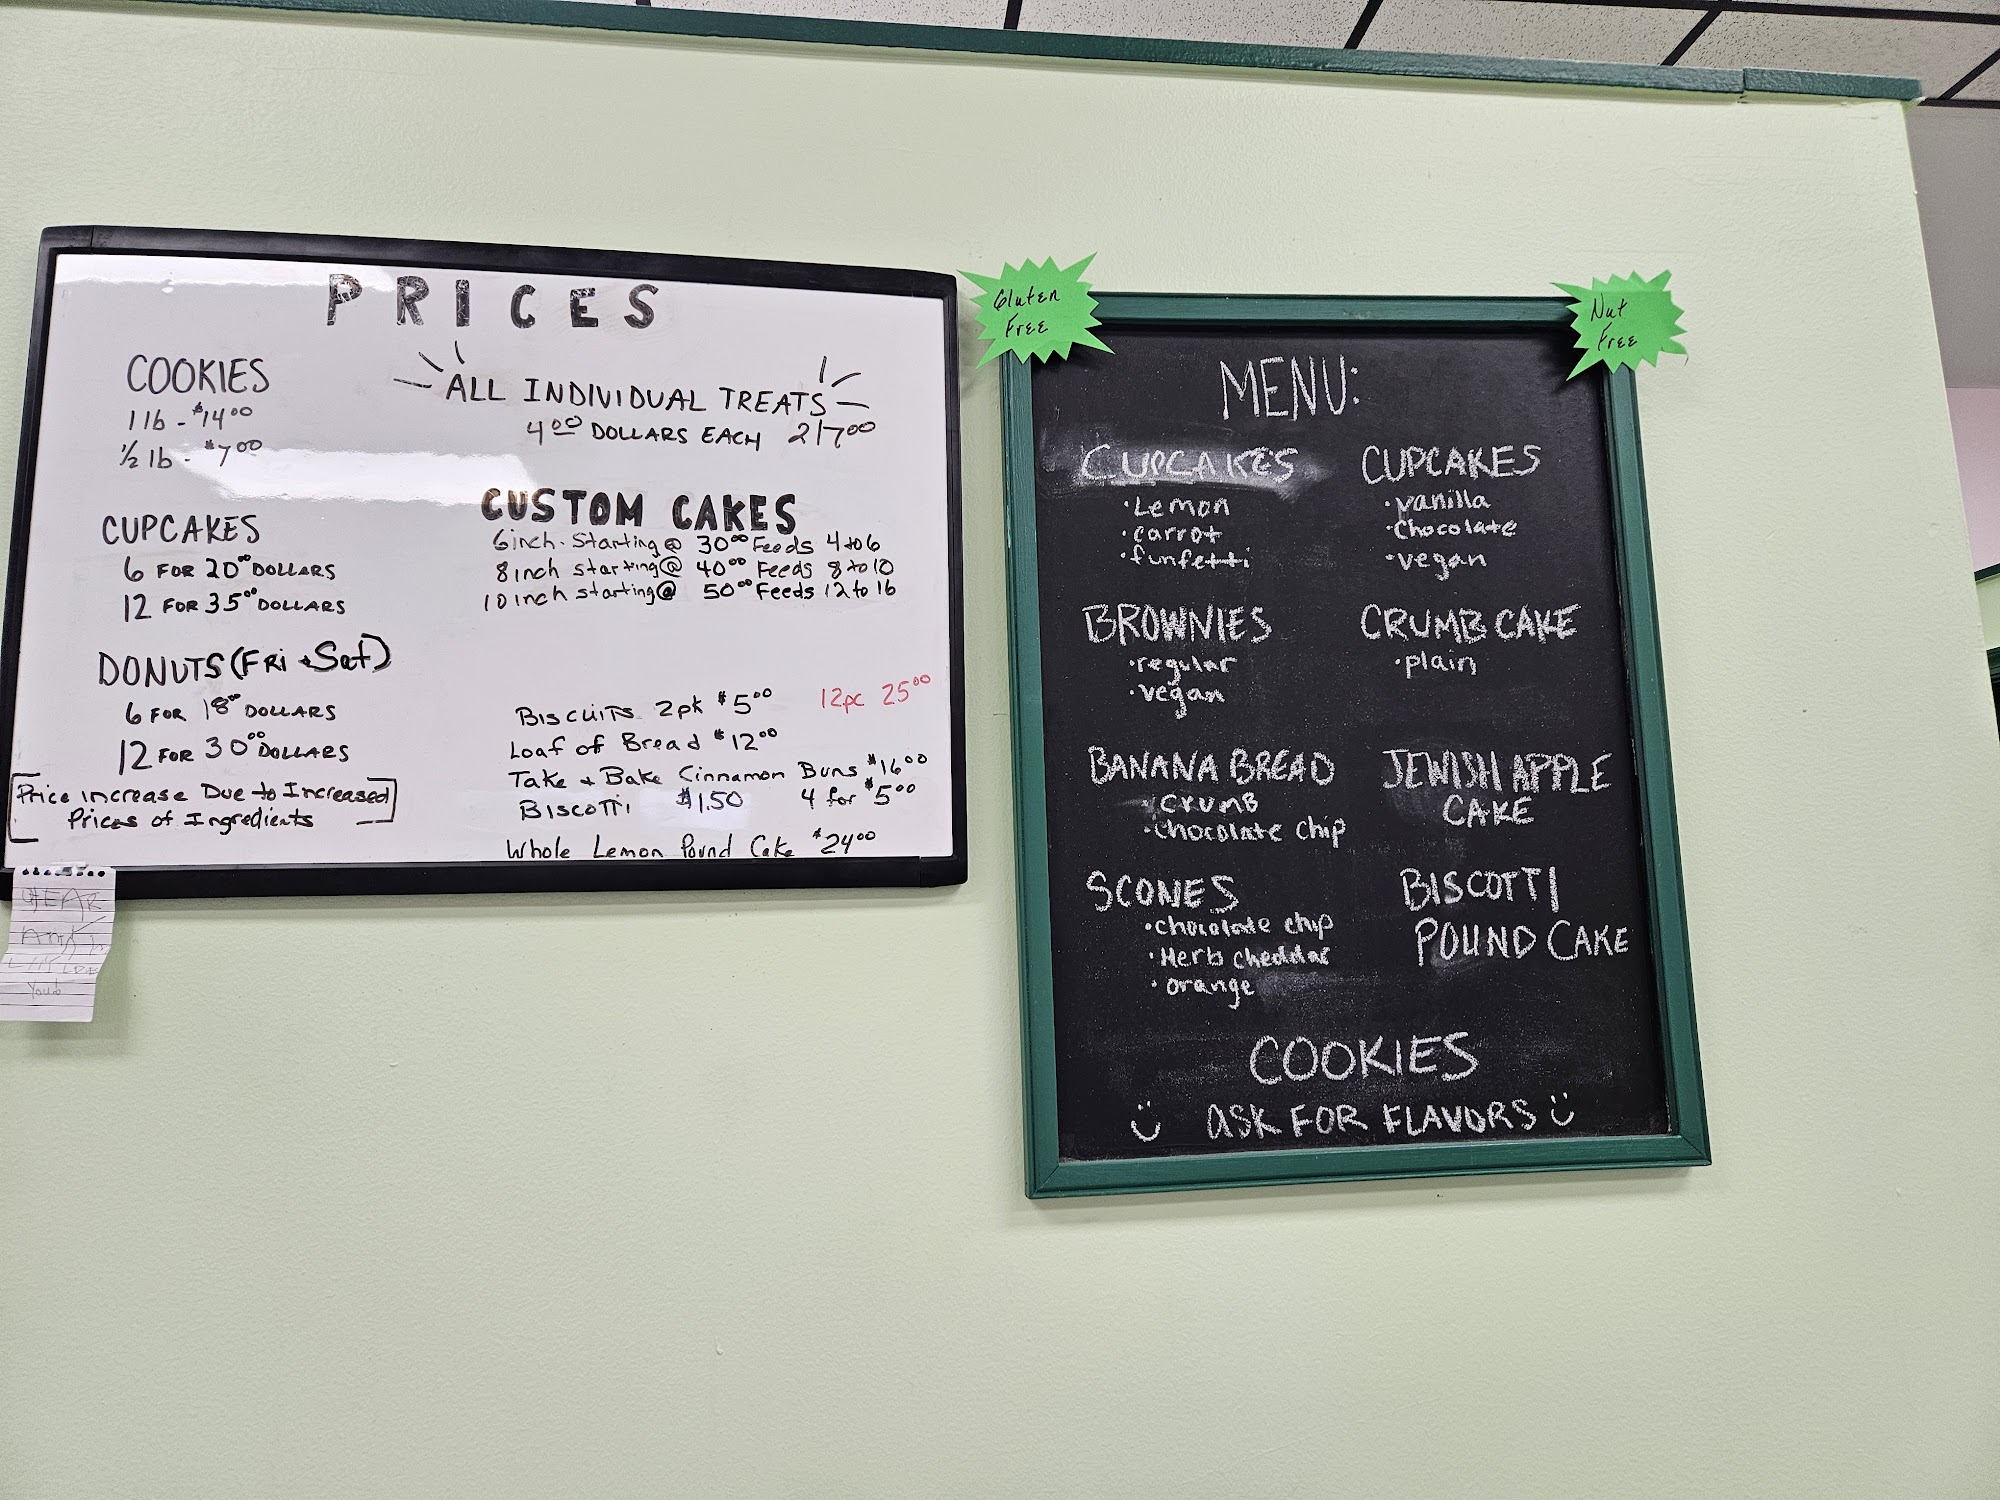 PRICES
COOKIES
1 lb - $14.00
1/2 lb - $7.00
CUPCAKES
6 FOR 20.00 DOLLARS
12 FOR 35.00 DOLLARS
DONUTS (FRi + Sat)
6 FOR 18.00 DOLLARS
12 FOR 30.00 DOLLARS
Price increase Due to Increased
Prices of Ingredients
ALL INDIVIDUAL TREATS
4.00 DOLLARS EACH 2/7.00
CUSTOM CAKES
6 inch. Starting @ 30.00 Feeds 4 to 6
8 inch starting @ 40.00 Feeds 8 to 10
10 inch starting @ 50.00 Feeds 12 to 16
Biscuits 2pk $5.00 12pc 25.00
Loaf of Bread $12.00
Take + Bake Cinnamon Buns $16.00
Biscotti $1.50 4 for $5.00
Whole Lemon Pound Cake $24.00
Gluten
Free
Nut
Free
MENU:
CUPCAKES
• Lemon
• carrot
• funfetti
CUPCAKES
• vanilla
• Chocolate
• vegan
BROWNIES
• regular
• vegan
CRUMB CAKE
• plain
BANANA BREAD
• crumb
• chocolate chip
JEWISH APPLE
CAKE
SCONES
• chocolate chip
• Herb cheddar
• orange
BISCOTTI
POUND CAKE
COOKIES
ASK FOR FLAVORS